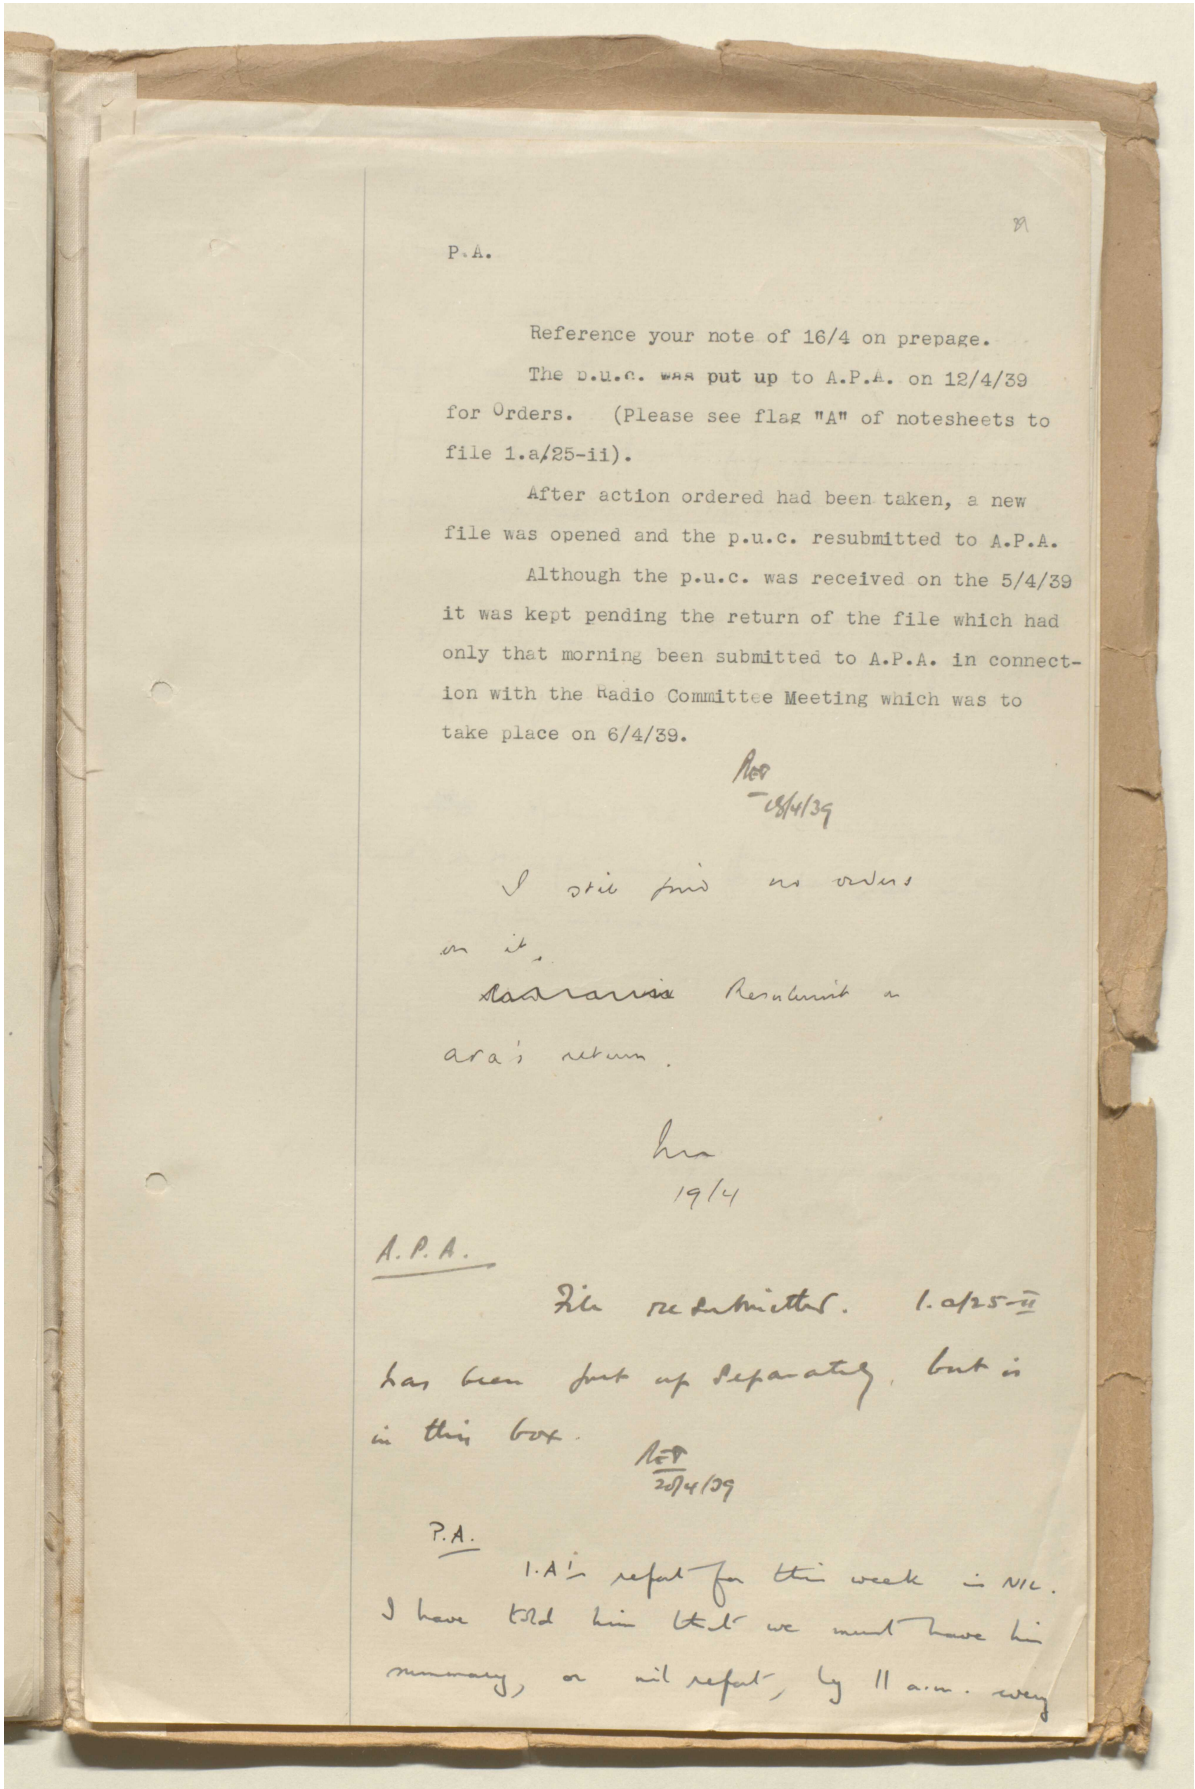 P.A.
Reference your note of 16/4 on prepage.
The p.u.c. was put up to A.P.A. on 12/4/39
for Orders. (Please see flag "A" of notesheets to
file 1.a/25-ii).
After action ordered had been taken, a new
file was opened and the p.u.c. resubmitted to A.P.A.
Although the p.u.c. was received on the 5/4/39
it was kept pending the return of the file which had
only that morning been submitted to A.P.A. in connect-
ion with the Radio Committee Meeting which was to
take place on 6/4/39.
18/4/39
I still find no orders
on it.
Resubmit on
APA's return.
19/4
A.P.A.
File resubmitted. 1.a/25-II
has been put up separately, but is
in this box.
20/4/39
P.A.
I.A's report for this week is NIL.
I have told him that we must have his
summary, or nil report, by 11 a.m. every